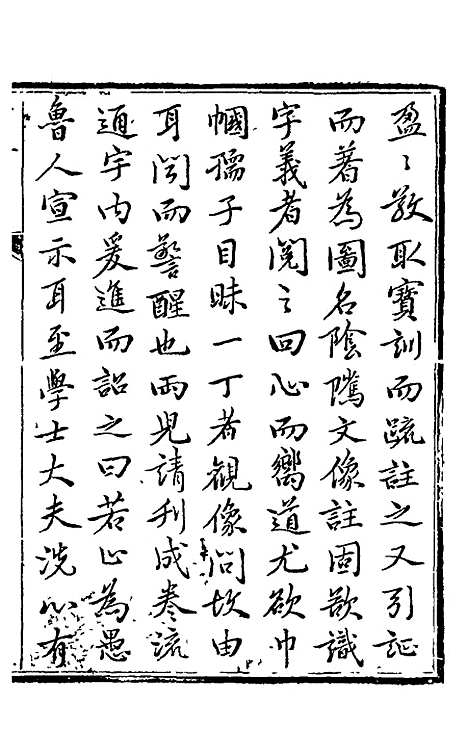 盈〻敬取寶訓而疏註之又引証
而著為圖名陰隲文像註固欲識
字義者閱之回心而嚮道尤欲巾
幗孺子目昧一丁者觀像問故由
耳閱而警醒也兩兒請刊成卷流
通宇内爰進而詔之曰若止為愚
魯人宣示耳至學士大夫洗心有